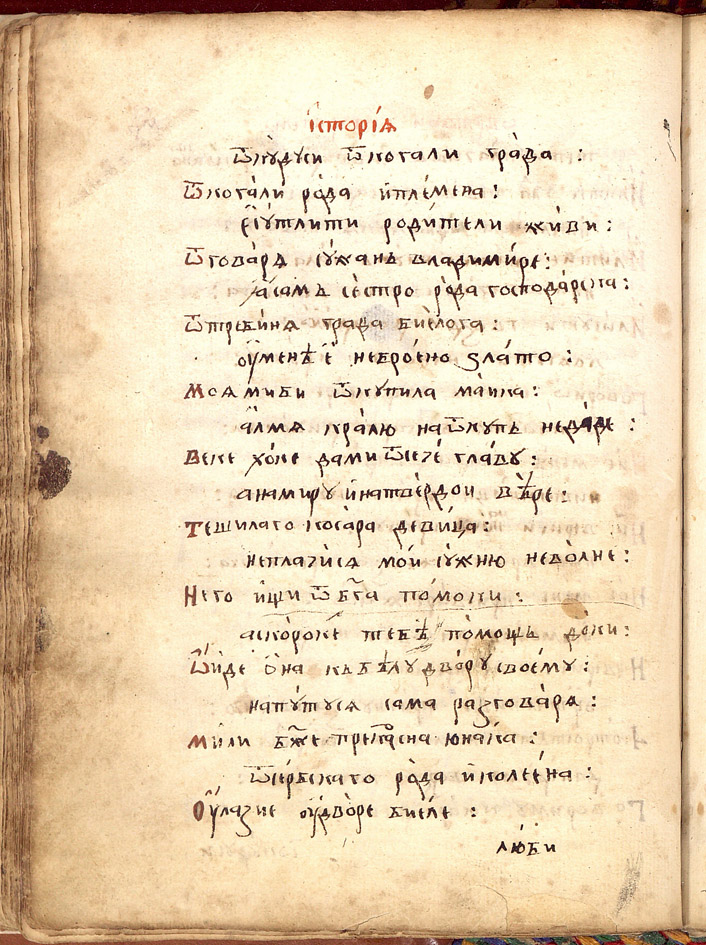 їсторїѧ
ѿкудуси ѿкогали града :
ѿкогали рода иплемена :
еїутлити родители живи :
ѿговарѧ сужань владимире :
ꙗсамъ сестро рода господарска :
ѿтребинѧ града биелога :
оуменѣ е неброено злато :
Моѧ миби ѿкупила маика :
алмѧ кралю наѿкупь недаде :
Веке хоке дами ѿсече главу :
анамиру инатвердои вѣре :
Тешилаго косара девица :
неплачисѧ мои сужню неволне :
Него ищи ѿ бг҃а помоки :
аскороке тебѣ помощь доки :
ѿиде она къбѣлу двору своему :
напутусѧ сама разговарѧ :
мили бж҃е прекрасна юнака :
ѿсербскаго рода иколеена :
Оулазие оудворе биеле :
люби